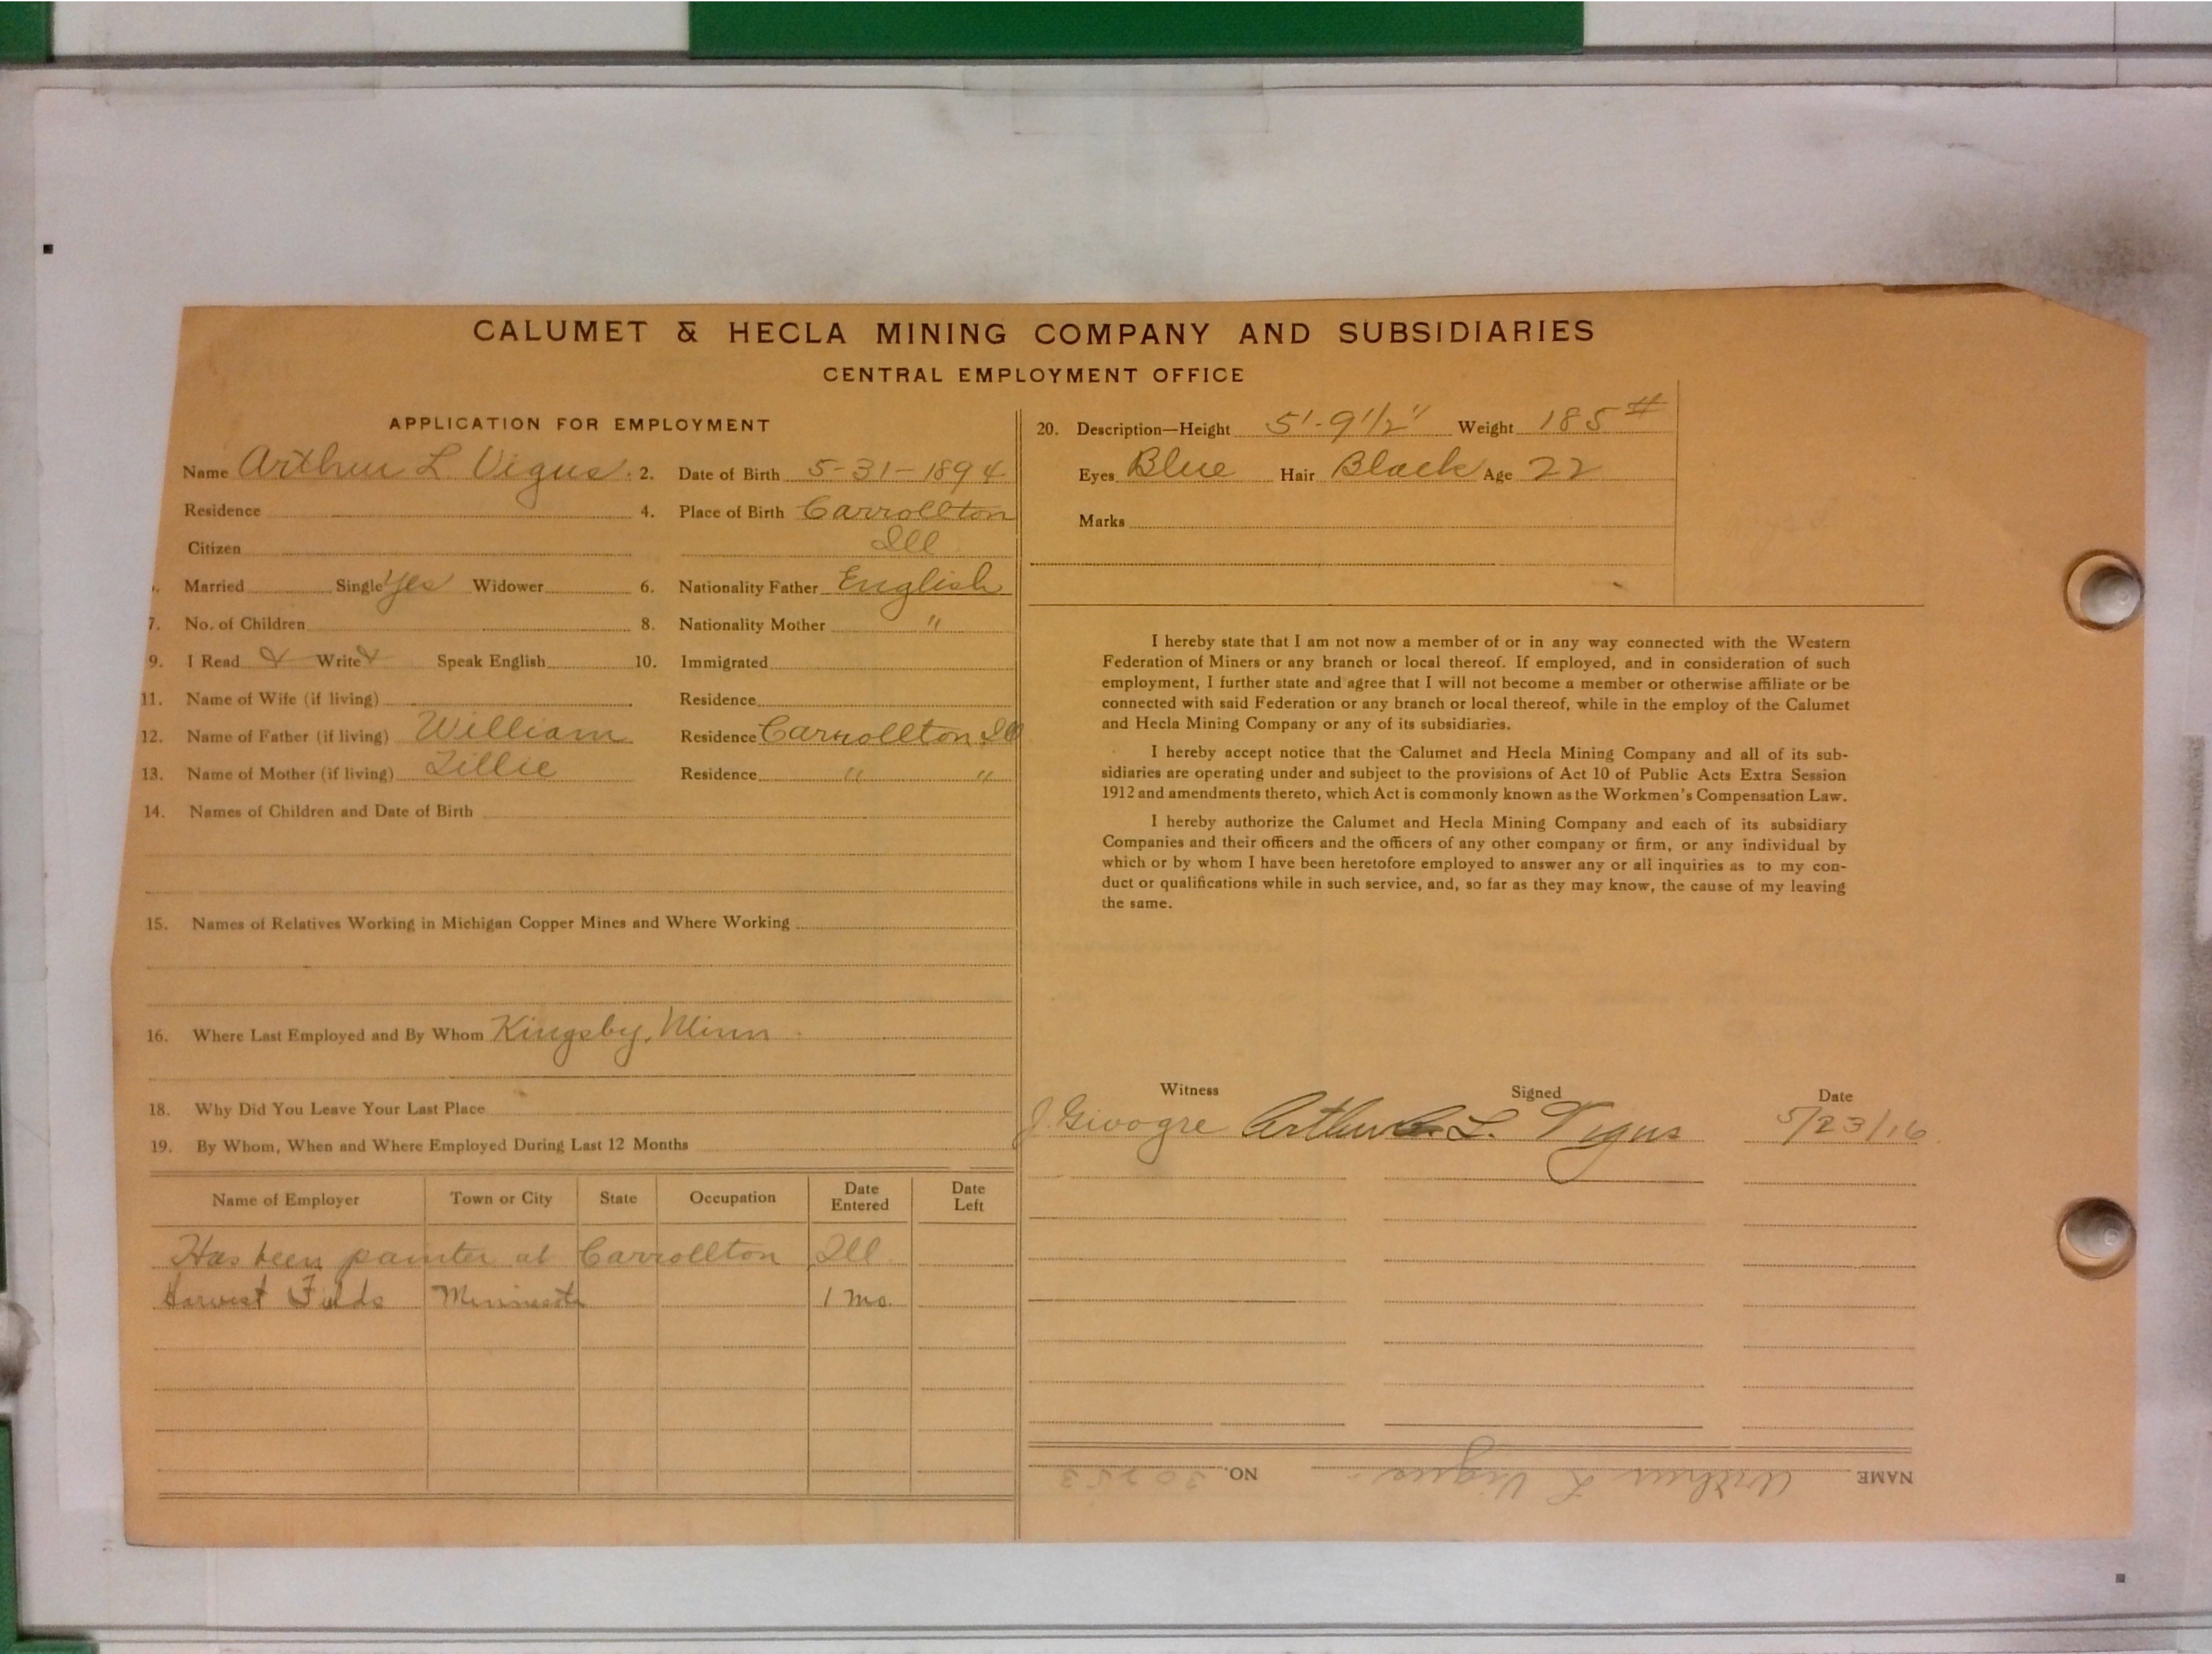 CALUMET & HECLA MINING COMPANY AND SUBSIDIARIES
CENTRAL EMPLOYMENT OFFICE
APPLICATION FOR EMPLOYMENT
Name Arthur L. Vigus. 2. Date of Birth 5-31-1894
Residence 4. Place of Birth Carrollton
Citizen Ill
Married Single Yes Widower 6. Nationality Father English
7. No. of Children 8. Nationality Mother "
9. I Read & Write Speak English 10. Immigrated
11. Name of Wife (if living) Residence
12. Name of Father (if living) William Residence Carrollton Ill
13. Name of Mother (if living) Lillie Residence " "
14. Names of Children and Date of Birth
15. Names of Relatives Working in Michigan Copper Mines and Where Working
16. Where Last Employed and By Whom Kingsby, Minn
18. Why Did You Leave Your Last Place
19. By Whom, When and Where Employed During Last 12 Months
Name of Employer Town or City State Occupation Date Entered Date Left
Has been painter at Carrollton Ill
Harvest Fields Minnesota 1 mo.
20. Description—Height 5'-9 1/2" Weight 185 #
Eyes Blue Hair Black Age 22
Marks
I hereby state that I am not now a member of or in any way connected with the Western
Federation of Miners or any branch or local thereof. If employed, and in consideration of such
employment, I further state and agree that I will not become a member or otherwise affiliate or be
connected with said Federation or any branch or local thereof, while in the employ of the Calumet
and Hecla Mining Company or any of its subsidiaries.
I hereby accept notice that the Calumet and Hecla Mining Company and all of its sub-
sidiaries are operating under and subject to the provisions of Act 10 of Public Acts Extra Session
1912 and amendments thereto, which Act is commonly known as the Workmen's Compensation Law.
I hereby authorize the Calumet and Hecla Mining Company and each of its subsidiary
Companies and their officers and the officers of any other company or firm, or any individual by
which or by whom I have been heretofore employed to answer any or all inquiries as to my con-
duct or qualifications while in such service, and, so far as they may know, the cause of my leaving
the same.
Witness Signed Date
J. Givogre Arthur L. Vigus 5/23/16
NAME Arthur L Vigus. NO. 30253